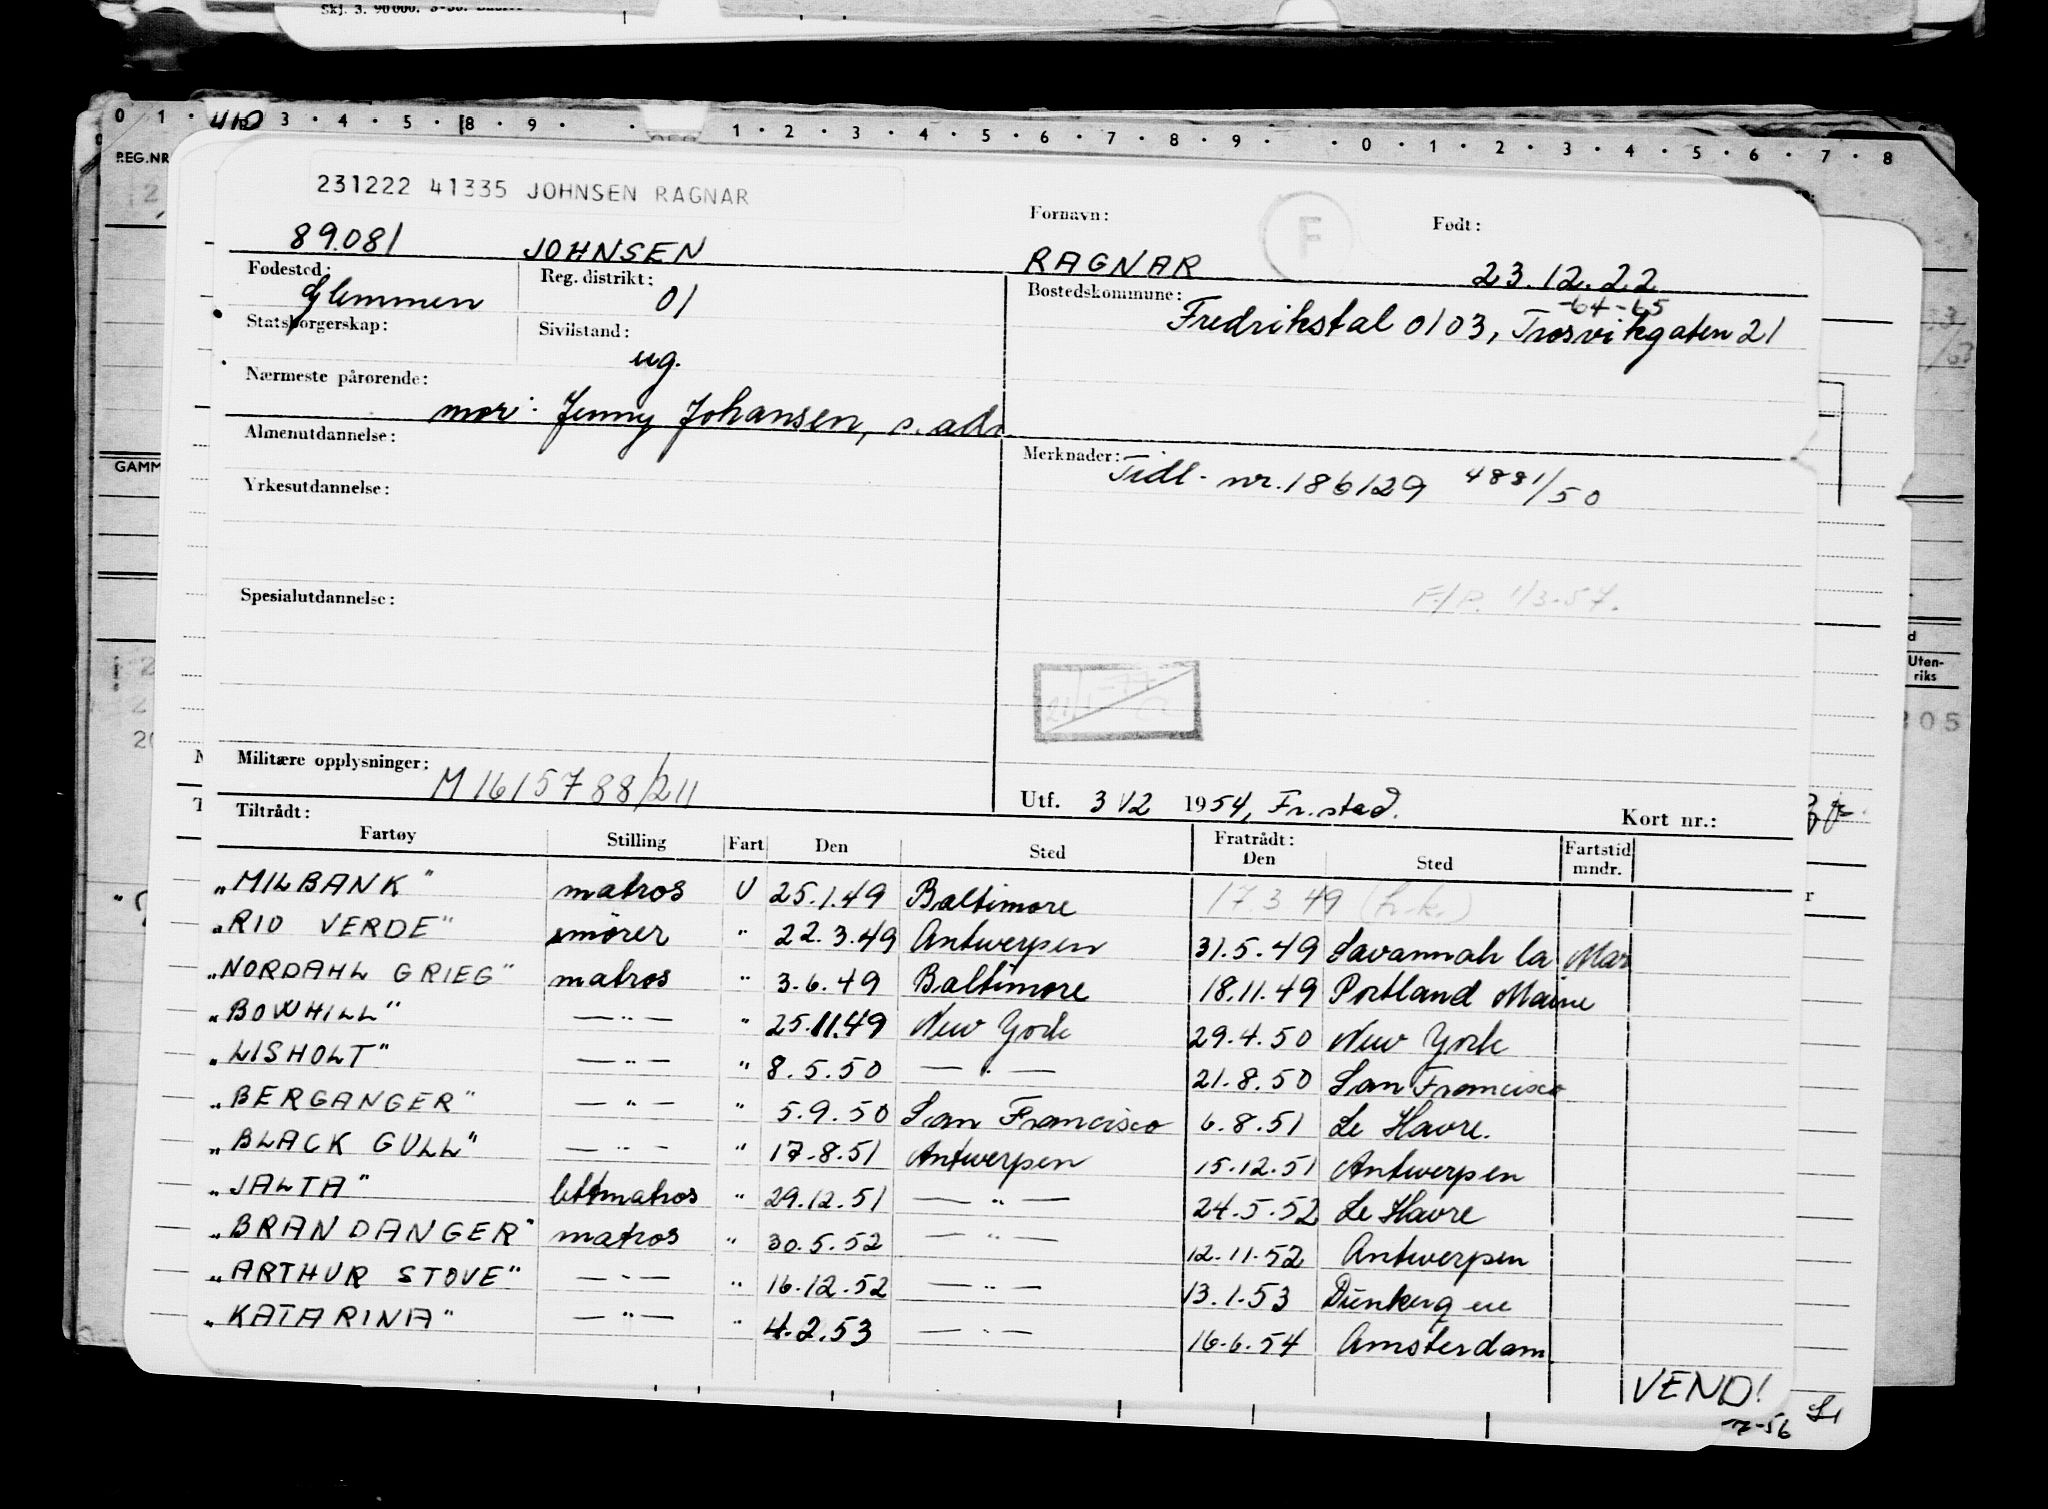 Skj. 3. 90000. 3-50.
0 1 410 3 4 5 8 9 1 2 3 4 5 6 7 8 9 0 1 2 3 4 5 6 7 8
REG.NR
231222 41335 JOHNSEN RAGNAR
Fornavn: F Født:
89081 JOHNSEN RAGNAR 23.12.22
Fødested: Glemmen Reg. distrikt: 01 Bostedskommune: -64-65
Fredrikstad 0103, Trosvikgaten 21
Statsborgerskap: Sivilstand: ug.
Nærmeste pårørende:
mor: Jenny Johansen, s. adr.
Almenutdannelse: Merknader: Tidl. nr. 186129 4881/50
GAMM
Yrkesutdannelse:
F./P. 1/3-57.
Spesialutdannelse:
Uten-
riks
305
Militære opplysninger: M1615788/211
Utf. 3/12 1954, Fr.stad. Kort nr.:
Tiltrådt: Fratrådt:
Fartøy Stilling Fart Den Sted Den Sted Fartstid mndr.
"MILBANK" matros U 25.1.49 Baltimore 17.3 49 (h.k.)
"RIO VERDE" smører " 22.3.49 Antwerpen 31.5.49 Savannah la Mar
"NORDAHL GRIEG" matros " 3.6.49 Baltimore 18.11.49 Portland Maine
"BOWHILL" — " — " 25.11.49 New York 29.4.50 New York
"LISHOLT" — " — " 8.5.50 — " — 21.8.50 San Francisco
"BERGANGER" — " — " 5.9.50 San Francisco 6.8.51 Le Havre.
"BLACK GULL" — " — " 17.8.51 Antwerpen 15.12.51 Antwerpen
"JALTA" lettmatros " 29.12.51 — " — 24.5.52 Le Havre
"BRANDANGER" matros " 30.5.52 — " — 12.11.52 Antwerpen
"ARTHUR STOVE" — " — " 16.12.52 — " — 13.1.53
"KATARINA" — " — " 4.2.53 — " — 16.6.54 Amsterdam
VEND!
-56